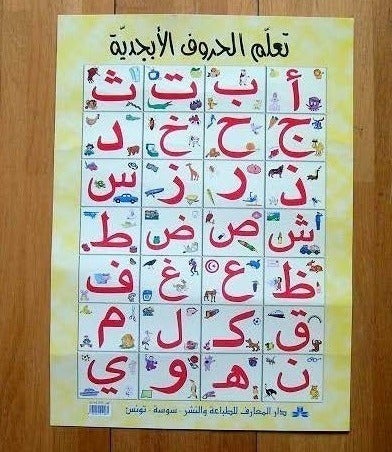 تعلّم الحروف الأبجديّة
أ ب ت ث
ج ح خ د
ذ ر ز س
ش ص ض ط
ظ ع غ ف
ق ك ل م
ن هـ و ي
دار المعارف للطباعة والنشر - سوسة - تونس